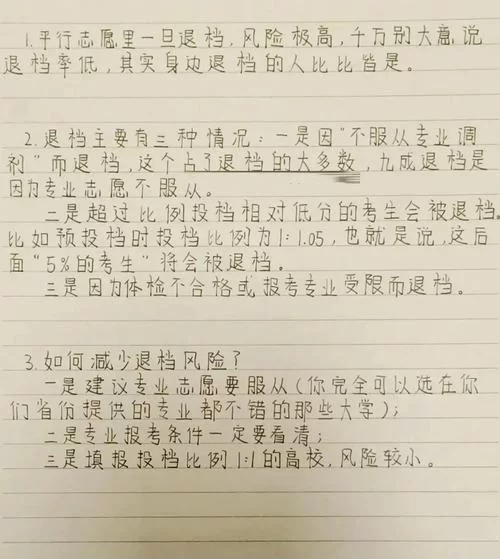 1.平行志愿里一旦退档,风险极高,千万别大意,说
退档率低,其实身边退档的人比比皆是。
2.退档主要有三种情况:一是因“不服从专业调
剂”而退档,这个占了退档的大多数,九成退档是
因为专业志愿不服从。
二是超过比例投档相对低分的考生会被退档。
比如预投档时投档比例为1:1.05,也就是说,这后
面“5%的考生”将会被退档。
三是因为体检不合格或报考专业受限而退档。
3.如何减少退档风险?
一是建议专业志愿要服从(你完全可以选在你
们省份提供的专业都不错的那些大学);
二是专业报考条件一定要看清;
三是填报投档比例1:1的高校,风险较小。